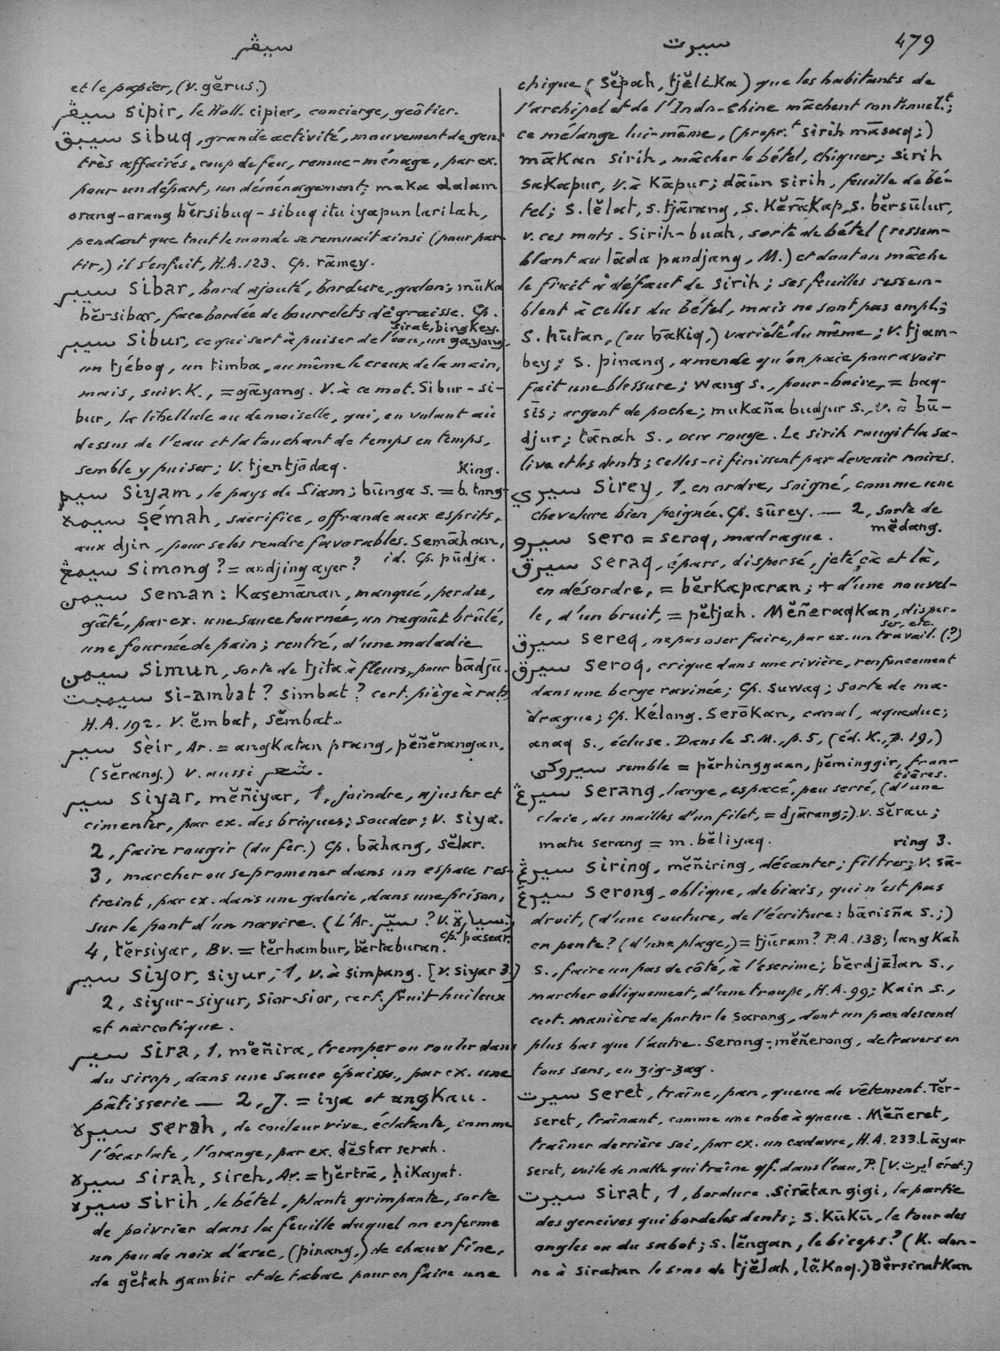 سيڤر
سيرت
479
et le papier, (v. gĕrus.)
سيڤر sipir, le Holl. cipier, concierge, geôlier.
سيبق sibuq, grande activité, mouvement de gens
très affairés, coup de feu, remue-ménage, par ex.
pour un départ, un déménagement; maka dalam
orang-orang bĕrsibuq-sibuq itu iyapun larilah,
pendant que tout le monde se remuait ainsi (pour par-
tir,) il s'enfuit, H.A. 123. Cp. rāmey.
سيبر sibar, bord ajouté, bordure, galon; mūka
bĕrsibar, face bordée de bourrelets de graisse. Cp.
sirat, bingkey.
سيبر sibur, ce qui sert à puiser de l'eau, un gayong,
un tjéboq, un timba, ou même le creux de la main,
mais, suiv. K., = gāyang. V. à ce mot. Sibur-si-
bur, la libellule ou demoiselle, qui, en volant au
dessus de l'eau et la touchant de temps en temps,
semble y puiser; v. tjentjādaq.
king.
سيم siyam, le pays de Siam; būnga s. = b. tong-
سيمه ṣémah, sacrifice, offrande aux esprits,
aux djin, pour se les rendre favorables. Semāhan,
id. Cp. pūdja.
سيمڠ simong? = andjing ayer?
سيمن seman: Kasemānan, manqué, perdu,
gâté, par ex. une sauce tournée, un ragoût brûlé,
une fournée de pain; rentré, d'une maladie
سيمن simun, sorte de tjita à fleurs, pour bādju.
سيمبت si-ambat? simbat? cert. piège à rats,
H.A. 192. V. ĕmbat, sĕmbat.
سير sèir, Ar. = angkatan prang, pĕñĕrangan,
(sĕrang.) v. aussi شعر.
سير siyar, mĕñiyar, 1, joindre, ajuster et
cimenter, par ex. des briques; souder; v. siya.
2, faire rougir (du fer.) Cp. bāhang, sĕlar.
3, marcher ou se promener dans un espace res-
treint, par ex. dans une galerie, dans une prison,
sur le pont d'un navire. (L'Ar. سيّر ? V. سيارة)
Cp. pasear.
4, tĕrsiyar, Bv. = tĕrhambur, bĕrtaburan.
سير siyor, siyur, 1, v. à simpang. [v. siyar 3.)
2, siyur-siyur, sior-sior, cert. fruit huileux
et narcotique.
سير sira, 1, mĕñira, tremper ou rouler dans
du sirop, dans une sauce épaisse, par ex. une
pâtisserie — 2, J. = iya et angkau.
سيره serah, de couleur vive, éclatante, comme
l'écarlate, l'orange, par ex. dĕstar serah.
سيره sirah, sireh, Ar. = tjĕrtrā, ḥikayat.
سيره sirih, le bétel, plante grimpante, sorte
de poivrier dans la feuille duquel on enferme
un peu de noix d'arec, (pinang,) de chaux fine,
de gĕtah gambir et de tabac pour en faire une
chique (sĕpah, tjĕlĕka) que les habitants de
l'archipel et de l'Indo-Chine mâchent continuel.t;
ce mélange lui-même, (propr.t sirih māsaq;)
mākan sirih, mâcher le bétel, chiquer; sirih
sakapur, v. à Kāpur; dāün sirih, feuille de bé-
tel; s. lĕlat, s. tjārang, s. Kĕrākap, s. bĕrsūlur,
v. ces mots. Sirih-buah, sorte de bétel (ressem-
blant au lāda pandjang, M.) et dont on mâche
le fruit à défaut de sirih; ses feuilles ressem-
blent à celles du bétel, mais ne sont pas empl;
s. hūtan, (ou bākiq,) variété du même; v. tjam-
bey; s. pinang, amende qu'on paie pour avoir
fait une blessure; wang s., pour-boire, = baq-
sīs; argent de poche; mukaña budjur s., v. à bū-
djur; tānah s., ocre rouge. Le sirih rougit la sa-
live et les dents; celles-ci finissent par devenir noires.
سيري sirey, 1, en ordre, soigné, comme une
chevelure bien peignée. Cp. sūrey. — 2, sorte de
mĕdang.
سيرو sero = seroq, madrague.
سيرق seraq, épars, dispersé, jeté çà et là,
en désordre, = bĕrkaparan; + d'une nouvel-
le, d'un bruit, = pĕtjah. Mĕñeraqkan, disper-
ser, etc.
سيرق sereq, ne pas oser faire, par ex. un travail. (?)
سيرق seroq, crique dans une rivière, renfoncement
dans une berge ravinée; Cp. suwaq; sorte de ma-
drague; Cp. Kélong. Serōkan, canal, aqueduc;
anaq s., écluse. Dans le S.M., p. 5, (éd. K., p. 19,)
سيروكي semble = pĕrhinggaan, pĕminggir, fron-
tières.
سيرڠ serang, large, espacé, peu serré, (d'une
claie, des mailles d'un filet, = djārang;) v. sĕrau;
mata serang = m. bĕliyaq.
ring 3.
سيرڠ siring, mĕñiring, décanter; filtrer; v. sā-
سيرڠ serong, oblique, de biais, qui n'est pas
droit, (d'une couture, de l'écriture: bārisña s.;)
en pente? (d'une plage,) = tjūram? P.A. 138; langkah
s., faire un pas de côté, à l'escrime; bĕrdjālan s.,
marcher obliquement, d'une troupe, H.A. 99; Kain s.,
cert. manière de porter le sarong, dont un pan descend
plus bas que l'autre. Serong-mĕñerong, de travers en
tous sens, en zig-zag.
سيرت seret, traîne, pan, queue de vêtement. Tĕr-
seret, traînant, comme une robe à queue. Mĕñeret,
traîner derrière soi, par ex. un cadavre, H.A. 233. Lāyar
seret, voile de natte qui traîne qf. dans l'eau, P. [V. ايرت éret.)
سيرت sirat, 1, bordure. Sirātan gigi, la partie
des gencives qui borde les dents; s. kūkū, le tour des
ongles ou du sabot; s. lĕngan, le biceps? (K. don-
ne à siratan le sens de tjĕlah, lĕkoq.) Bĕrsiratkan